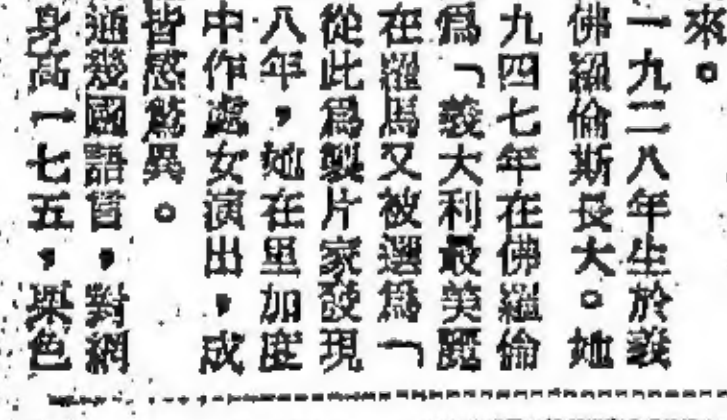 來。
一九二八年生於義
佛羅倫斯長大。她
九四七年在佛羅倫
爲「義大利最美麗
在羅馬又被選爲「
從此爲製片家發現
八年，她在里加度
中作處女演出，成
皆感驚異。
通幾國語言，對網
身高一七五，梁色